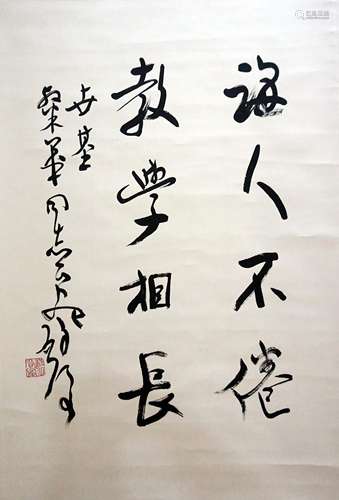 誨人不倦
教學相長
世基
粲華同志正之